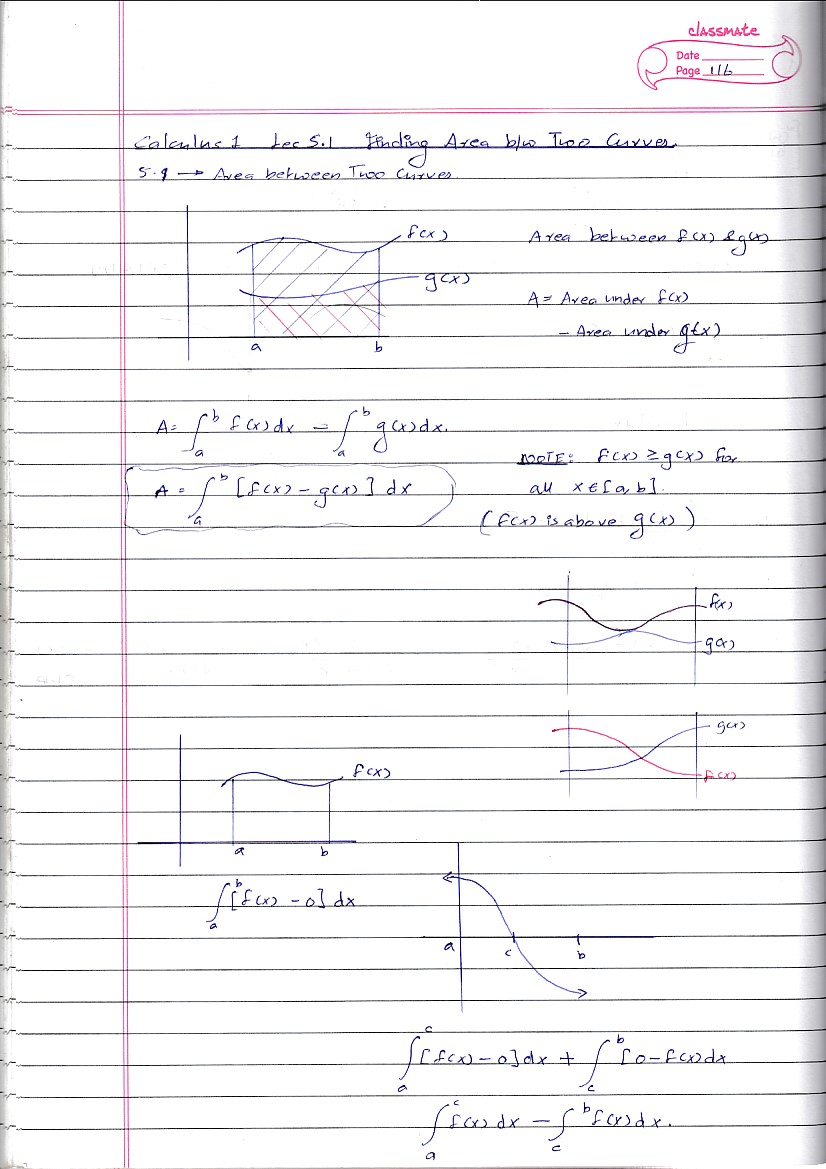 classmate
Date
Page 116
Calculus 1 Lec 5.1 Finding Area b/w Two Curves.
5.1 → Area between Two Curves.
f(x)
Area between f(x) & g(x)
g(x)
A = Area under f(x)
- Area under g(x)
a b
A = ∫_a^b f(x) dx - ∫_a^b g(x) dx.
NOTE: f(x) ≥ g(x) for
A = ∫_a^b [f(x) - g(x)] dx
all x ∈ [a, b].
(f(x) is above g(x))
f(x)
g(x)
g(x)
f(x)
f(x)
a b
∫_a^b [f(x) - 0] dx
a c b
∫_a^c [f(x) - 0] dx + ∫_c^b [0 - f(x) dx
∫_a^c f(x) dx - ∫_c^b f(x) dx.